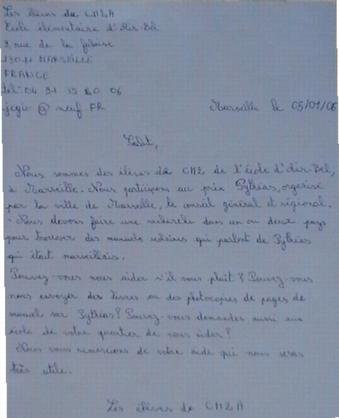 Les élèves du CM2A
Ecole élémentaire d'Air Bel
rue de la
13011 MARSEILLE
FRANCE
tel: 04 91 35 20 06
@ neuf FR
Marseille le 05/01/06
Salut,
Nous sommes des élèves de CM2 de l'école d'Air Bel,
à Marseille. Nous participons au prix Pythéas, organisé
par la ville de Marseille, le conseil général et régional.
Nous devons faire une recherche dans un ou deux pays
pour trouver des manuels scolaires qui parlent de Pythéas
qui était marseillais.
Pouvez-vous nous aider s'il vous plaît ? Pouvez-vous
nous envoyer des livres ou des photocopies de pages de
manuel sur Pythéas ? Pouvez-vous demander aussi aux
école de votre quartier de nous aider ?
Nous vous remercions de votre aide qui nous sera
très utile.
Les élèves de CM2A